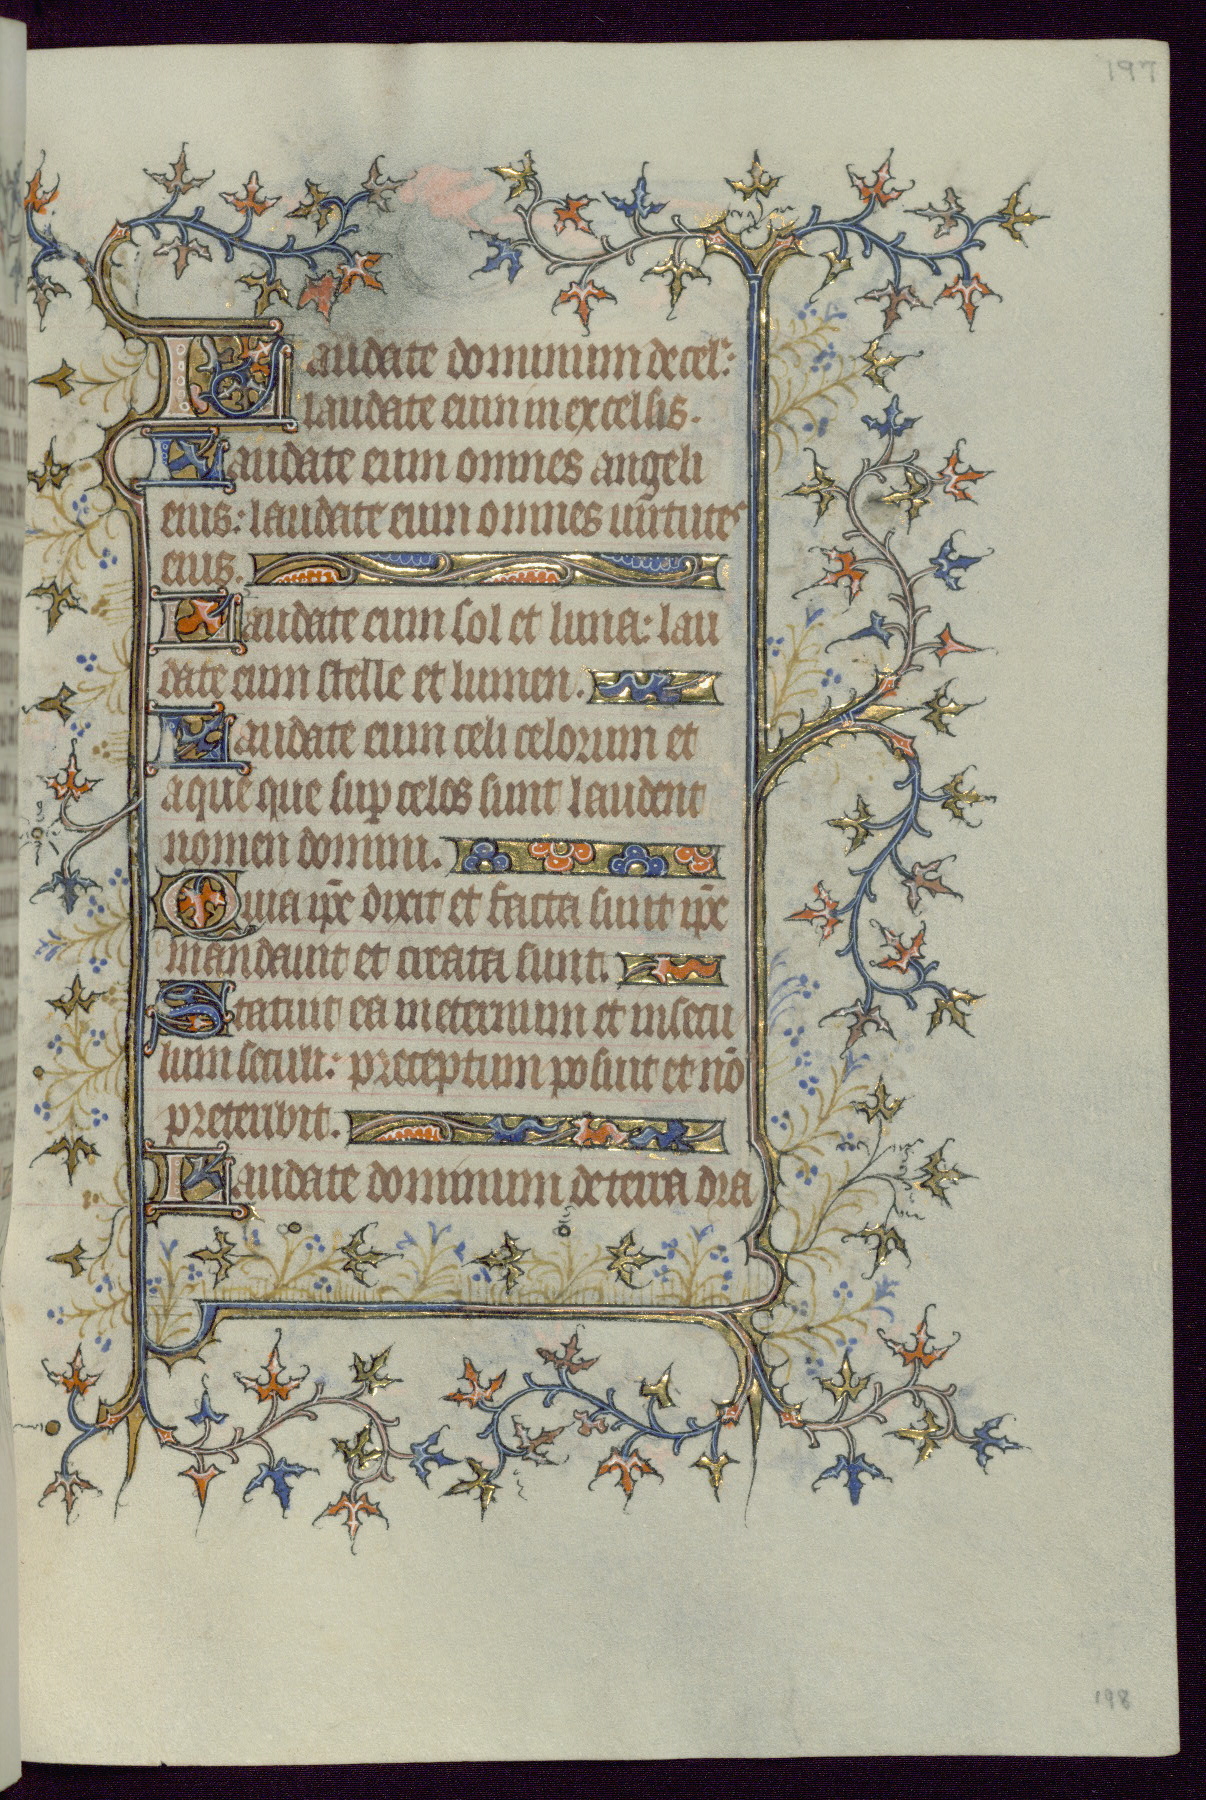 197
Laudate dominum de cel̉:
laudate eum in excelsis.
Laudate eum omnes angeli
eius: laudate eum omnes uirtutes
eius.
Laudate eum sol et luna: lau
date eum stelle et lumen.
Laudate eum celi celorum et
aque que suꝑ celos sunt laudent
nomen domini.
Quia ip̄e dixit et facta sunt ip̄e
mandauit et creata sunt.
Statuit ea in eternum et in secu
lum seculi: preceptum posuit et nō
preteribit.
Laudate dominum de terra dra
198